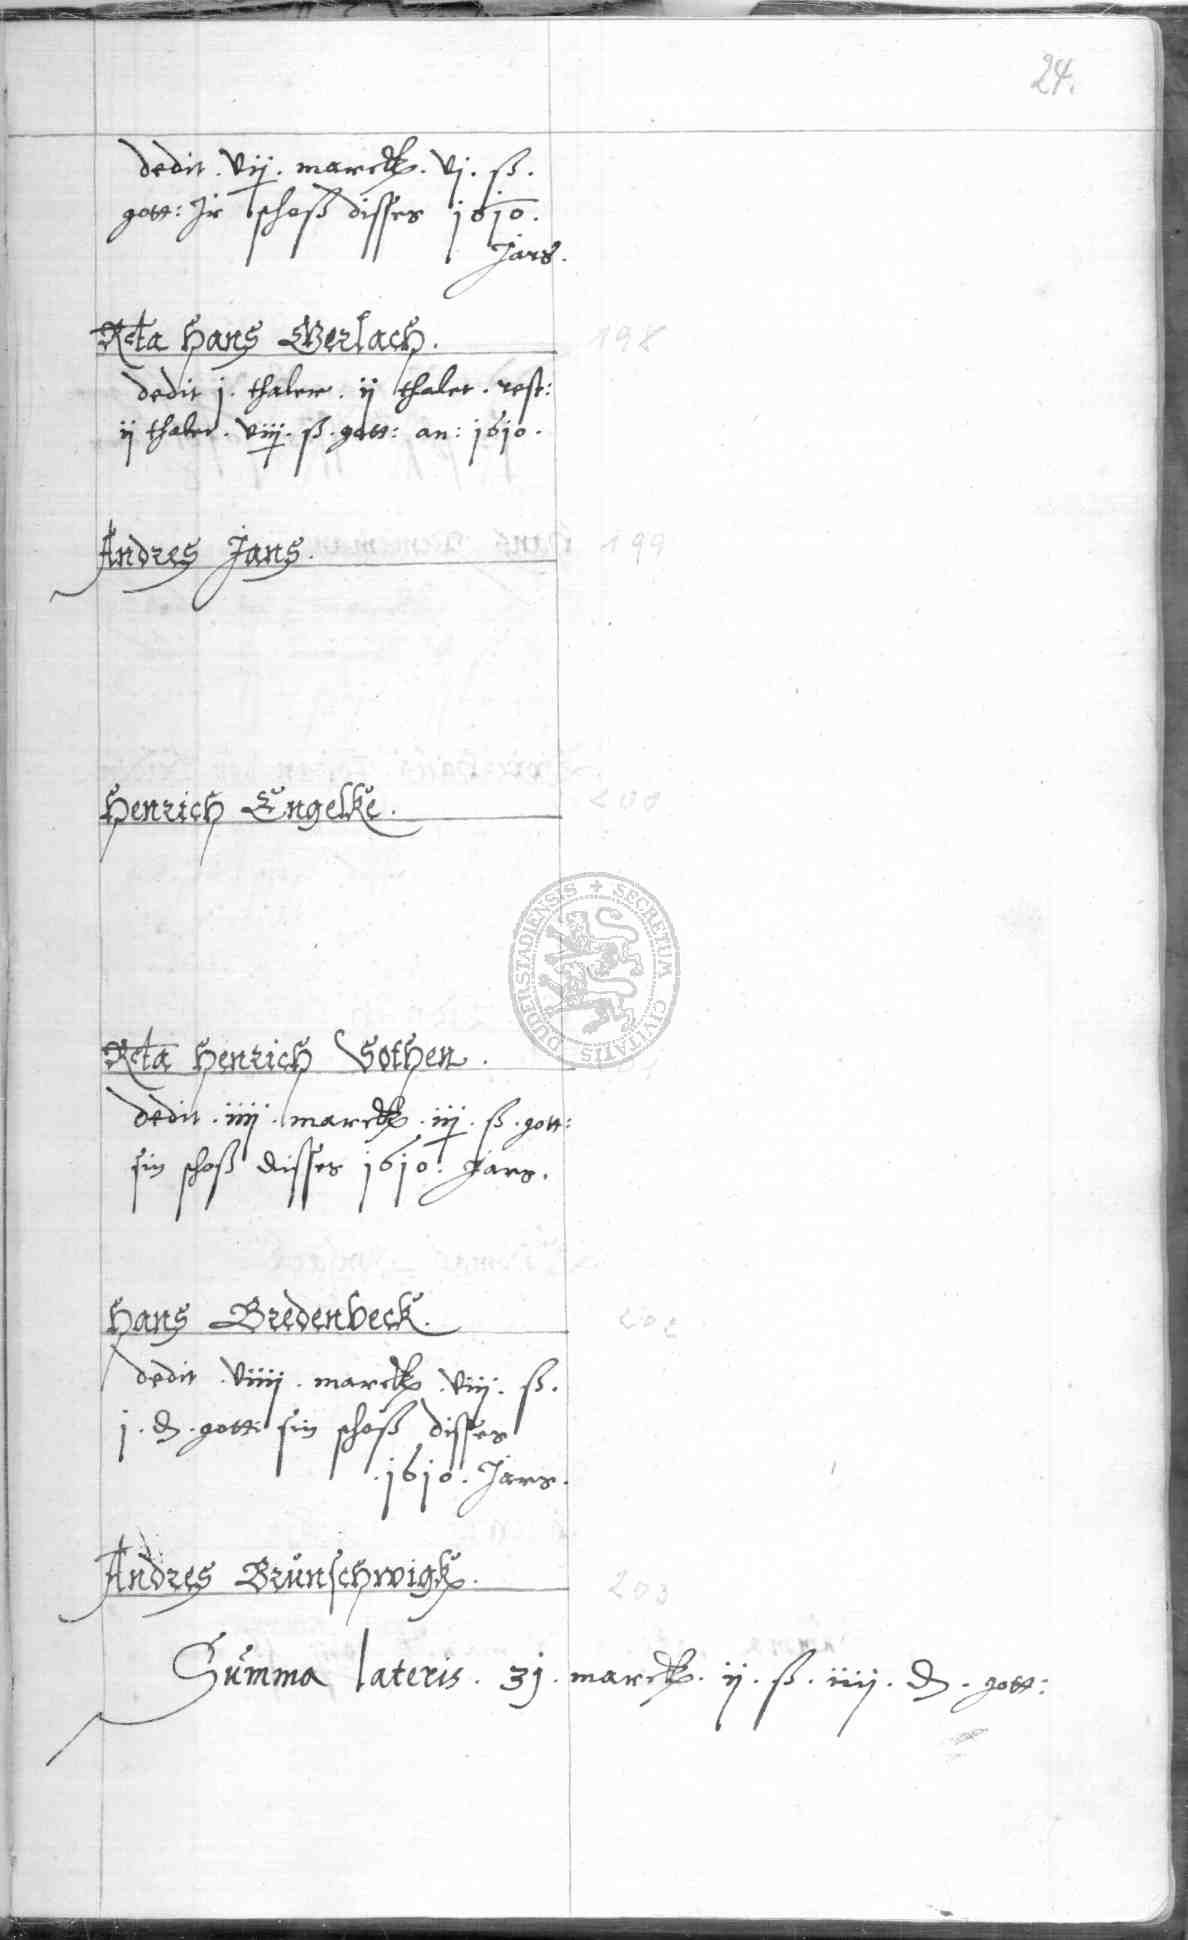 24.
dedit . vij . marck . vj . ß .
gott: Jr schoß disses 1610 .
Jars .
Rcta Hans Gerlach . 198
dedit j . thaler . ij thaler . rest:
ij thaler . viij . ß . gott: an: 1610 .
Andres Jans . 199
Henrich Engelke . 200
Rcta Henrich Sothen .
dedit . iiij . marck . iij . ß . gott:
sin schoß disses 1610 . Jars .
Hans Bredenbeck . 202
dedit . viiij . marck . viij . ß .
j . d . gott: sin schoß disses
. 1610 . Jars .
Andres Brünschwigk . 203
Summa lateris . 3j . marck . ij . ß . iiij . d . gott:
SECRETUM CIVITATIS DUDERSTADIENSIS